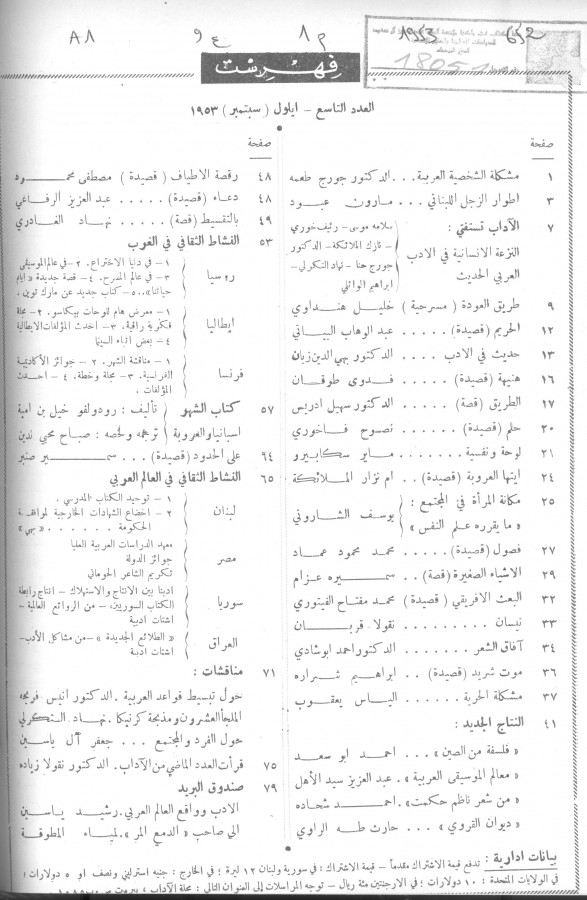 A8 ع 9 م 8 1953 652
1805
فهرست
العدد التاسع – ايلول ( سبتمبر ) ١٩٥٣
صفحة
١ مشكلة الشخصية العربية . . . الدكتور جورج طعمه
٣ اطوار الزجل اللبناني . . . مارون عبود
٧ الآداب تستفتي :
النزعة الانسانية في الادب
العربي الحديث
سلامه موسى – رئيف خوري
– نازك الملائكة – الدكتور
جورج حنا – نهاد التكرلي –
ابراهيم الوائلي
٩ طريق العودة ( مسرحية ) خليل هنداوي
١٢ الحريم ( قصيدة ) . . . . . عبد الوهاب البياتي
١٣ حديث في الادب . . . الدكتور بهي الدين زيان
١٦ هنيهة ( قصيدة ) . . . . فدوى طوقان
١٧ الطريق ( قصة ) . . . الدكتور سهيل ادريس
٢٠ حلم ( قصيدة ) . . . . . نصوح فاخوري
٢١ لوحة ونفسية . . . . . ماير سكابيرو
٢٤ ايتها العروبة ( قصيدة ) . . ام نزار الملائكة
٢٥ مكانة المرأة في المجتمع :
« ما يقرره علم النفس »
يوسف الشاروني
٢٧ فصول ( قصيدة ) . . . . محمد محمود عماد
٢٩ الاشياء الصغيرة ( قصة ) . . سميره عزام
٣٢ البعث الافريقي ( قصيدة ) محمد مفتاح الفيتوري
٣٣ نيسان . . . . . . . . نقولا قربان
٣٤ آفاق الشعر . . . . الدكتور احمد ابو شادي
٣٦ موت شريد ( قصيدة ) . . ابراهيم شراره
٣٧ مشكلة الحرية . . . . . . الياس يعقوب
٤١ النتاج الجديد :
« فلسفة من الصين » . . . احمد ابو سعد
« معالم الموسيقى العربية » . عبد العزيز سيد الأهل
« من شعر ناظم حكمت » . احمد شحاده
« ديوان القروي » . . . حارث طه الراوي
صفحة
٤٨ رقصة الاطياف ( قصيدة ) مصطفى محمود
٤٨ دعاء ( قصيدة ) . . . . . عبد العزيز الرفاعي
٤٩ بالتقسيط ( قصة ) . . . . . نهاد الغادري
٥٣ النشاط الثقافي في الغرب
روسيا
١ – في دنيا الاختراع . ٢ – في عالم الموسيقى
٣ – في عالم المسرح . ٤ – قصة جديدة « ايام
حياتنا » . . ٥ – كتاب جديد عن مارك توين .
ايطاليا
١ – معرض هام للوحات بيكاسو . ٢ – مجلة
فكرية راقية . ٣ – احدث المؤلفات الايطالية
٤ – بعض انباء السينما
فرنسا
١ – مناقشة الشهر . ٢ – جوائز الأكاديمية
الفرنسية . ٣ – مجلة وخطة . ٤ – احدث
المؤلفات .
٥٧ كتاب الشهر
اسبانيا والعروبة
تأليف : رودولفو خيل بن امية
ترجمه ولخصه : صباح محيي الدين
٦٤ على الحدود ( قصيدة ) . . . سمير صنبر
٦٥ النشاط الثقافي في العالم العربي
لبنان
١ – توحيد الكتاب المدرسي .
٢ – اخضاع الشهادات الخارجية لموافقة
الحكومة . . . . . . « بهي »
مصر
معهد الدراسات العربية العليا
جوائز الدولة
تكريم الشاعر الحوماني
سوريا
ادبنا بين الانتاج والاستهلاك – انتاج رابطة
الكتاب السوريين – من الروائع العالمية –
اشتات ادبية
العراق
« الطلائع الجديدة » – من مشاكل الأدب –
اشتات ادبية
٧١ مناقشات :
حول تبسيط قواعد العربية . الدكتور انيس فريحه
الملجأ العشرون ومذبحة كرنيكا . نهاد التكرلي
حول الفرد والمجتمع . . . جعفر آل ياسين
٧٥ قرأت العدد الماضي من الآداب . الدكتور نقولا زياده
٧٩ صندوق البريد
الادب وواقع العالم العربي . رشيد ياسين
الى صاحب « الدمع المر » . لمياء المطوقة
بيانات ادارية : تدفع قيمة الاشتراك مقدماً – قيمة الاشتراك : في سورية ولبنان ١٢ ليرة ؛ في الخارج : جنيه استرليني ونصف او ٥ دولارات ؛
في الولايات المتحدة : ١٠ دولارات ؛ في الارجنتين مئة ريال – توجه المراسلات الى العنوان التالي : مجلة الآداب ، بيروت